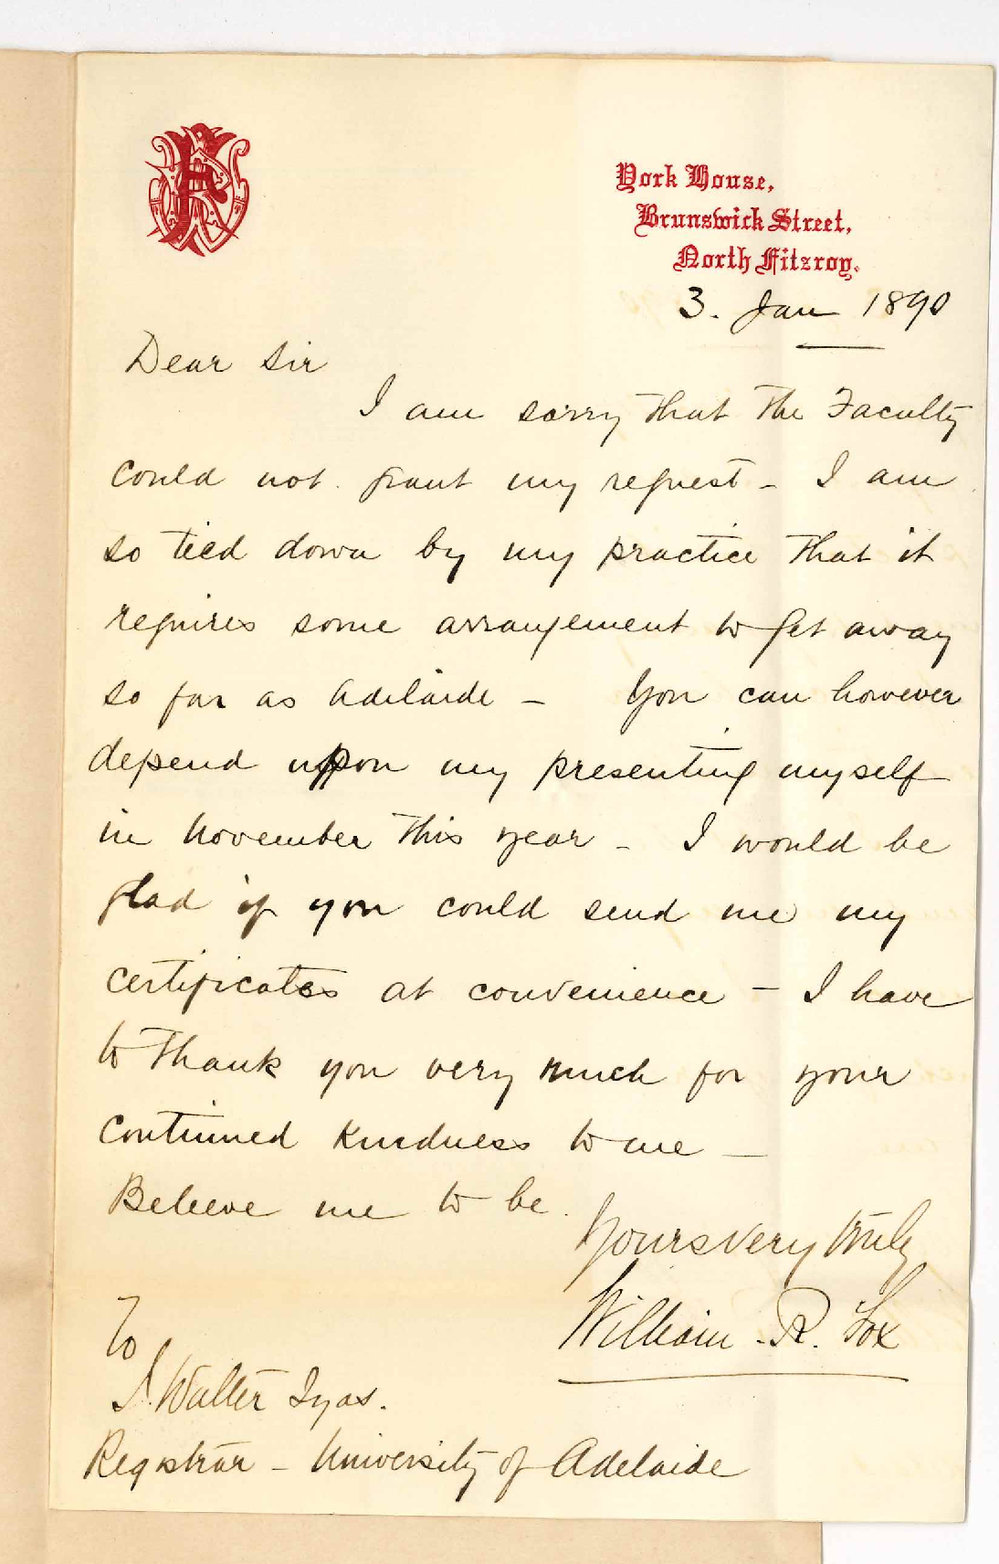 York House,
Brunswick Street,
North Fitzroy.
3. Jan 1890
Dear Sir
I am sorry that the Faculty
could not grant my request - I am
so tied down by my practice that it
requires some arrangement to get away
so far as Adelaide - You can however
depend upon my presenting myself
in November this year - I would be
glad if you could send me my
certificates at convenience - I have
to thank you very much for your
continued kindness to me -
Believe me to be.
Yours very truly
William . R. Fox
To
J. Walter Tyas.
Registrar - University of Adelaide